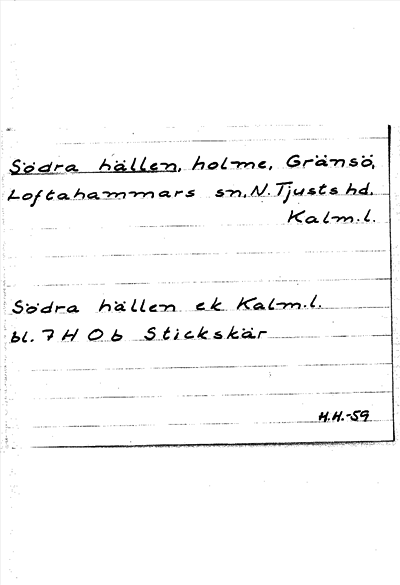 Södra hällen, holme, Gränsö,
Loftahammars sn, N. Tjusts hd.
Kalm. l.
Södra hällen ek Kalm. l.
bl. 7 H O b Stickskär
H.H.-59